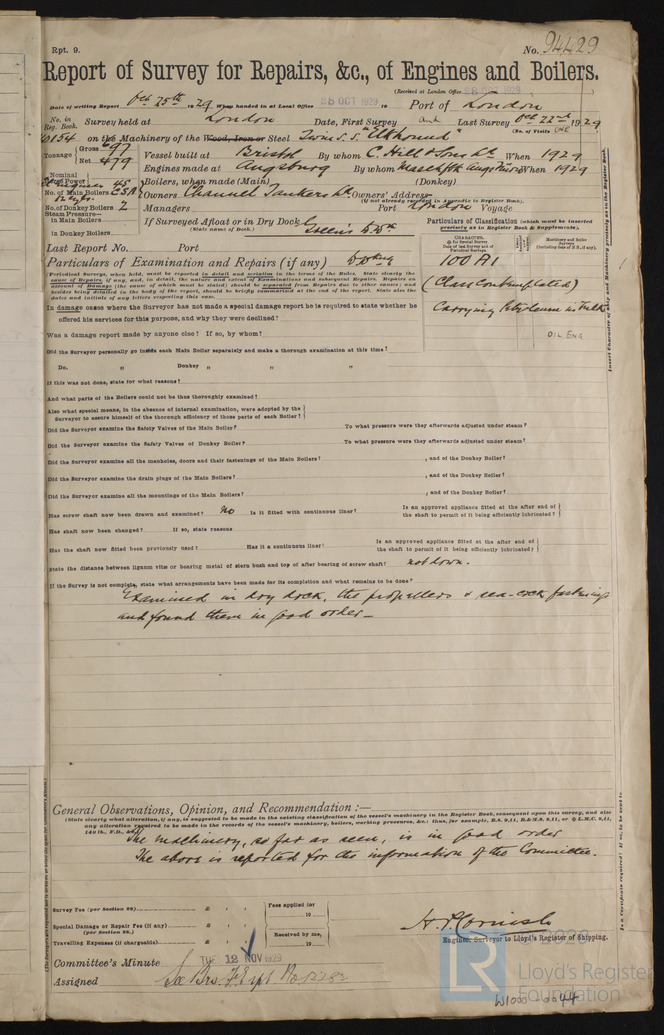 Rpt. 9.
No. 94429
Report of Survey for Repairs, &c., of Engines and Boilers.
(Received at London Office 28 OCT 1929
Date of writing Report Oct 25th 1929 When handed in at Local Office 28 OCT 1929 19 Port of London
No. in Reg. Book. Survey held at London Date, First Survey and Last Survey Oct 22nd 1929
(No. of Visits ONE)
on the Machinery of the Wood, Iron or Steel Twin S.S. "Elkhound"
Tonnage Gross 697 Net 479
Vessel built at Bristol By whom C. Hill & Sons Ld When 1929
Engines made at Augsburg By whom When 1929
Nominal Horse Power
Boilers, when made (Main) (Donkey)
No. of Main Boilers
Owners Channel Tankers Ld Owners' Address
(if not already recorded in Appendix to Register Book).
No. of Donkey Boilers 2
Managers Port London Voyage
Steam Pressure—
in Main Boilers
in Donkey Boilers
If Surveyed Afloat or in Dry Dock Green's D Dk
(State name of Dock.)
Particulars of Classification (which must be inserted precisely as in Register Book & Supplements).
Last Report No. Port
Particulars of Examination and Repairs (if any) D Dkg
100 A1
(Class Contemplated)
Carrying Petroleum in Bulk
OIL ENG
Periodical Surveys, when held, must be reported in detail and seriatim in the terms of the Rules. State clearly the
cause of Repairs, if any, and, in detail, the nature and extent of Examinations and subsequent Repairs. Repairs on
account of Damage (the cause of which must be stated) should be separated from Repairs due to other causes; and
besides being detailed in the body of the report, should be briefly summarised at the end of the report. State also the
dates and initials of any letters respecting this case.
In damage cases where the Surveyor has not made a special damage report he is required to state whether he
offered his services for this purpose, and why they were declined?
Was a damage report made by anyone else? If so, by whom?
Did the Surveyor personally go inside each Main Boiler separately and make a thorough examination at this time?
Do. „ Donkey „ „ „
If this was not done, state for what reasons?
And what parts of the Boilers could not be thus thoroughly examined?
Also what special means, in the absence of internal examination, were adopted by the
Surveyor to assure himself of the thorough efficiency of those parts of each Boiler?
Did the Surveyor examine the Safety Valves of the Main Boiler? To what pressure were they afterwards adjusted under steam?
Did the Surveyor examine the Safety Valves of Donkey Boiler? To what pressure were they afterwards adjusted under steam?
Did the Surveyor examine all the manholes, doors and their fastenings of the Main Boilers? , and of the Donkey Boiler?
Did the Surveyor examine the drain plugs of the Main Boilers? , and of the Donkey Boiler?
Did the Surveyor examine all the mountings of the Main Boilers? , and of the Donkey Boiler?
Has screw shaft now been drawn and examined? No Is it fitted with continuous liner? Is an approved appliance fitted at the after end of
the shaft to permit of it being efficiently lubricated?
Has shaft now been changed? If so, state reasons
Has the shaft now fitted been previously used? Has it a continuous liner? Is an approved appliance fitted at the after end of
the shaft to permit of it being efficiently lubricated?
State the distance between lignum vitæ or bearing metal of stern bush and top of after bearing of screw shaft? not down.
If the Survey is not complete, state what arrangements have been made for its completion and what remains to be done?
Examined in dry dock, the propellers & sea-cock fastenings
and found them in good order—
General Observations, Opinion, and Recommendation :—
(State clearly what alteration, if any, is suggested to be made in the existing classification of the vessel's machinery in the Register Book, consequent upon this survey, and also
any alteration required to be made in the records of the vessel's machinery, boilers, working pressures, &c.: thus, for example,
The machinery, as far as seen, is in good order
The above is reported for the information of the Committee.
Survey Fee (per Section 29)
Fees applied for
19
Special Damage or Repair Fee (if any)
(per Section 29.)
Received by me,
Travelling Expenses (if chargeable)
19
H. P. Cornish
Engineer Surveyor to Lloyd's Register of Shipping.
Committee's Minute TUE 12 NOV 1929
Assigned See Brs. F.E. rpt No
© 2020
LR
Lloyd's Register
Foundation
W1000-0044